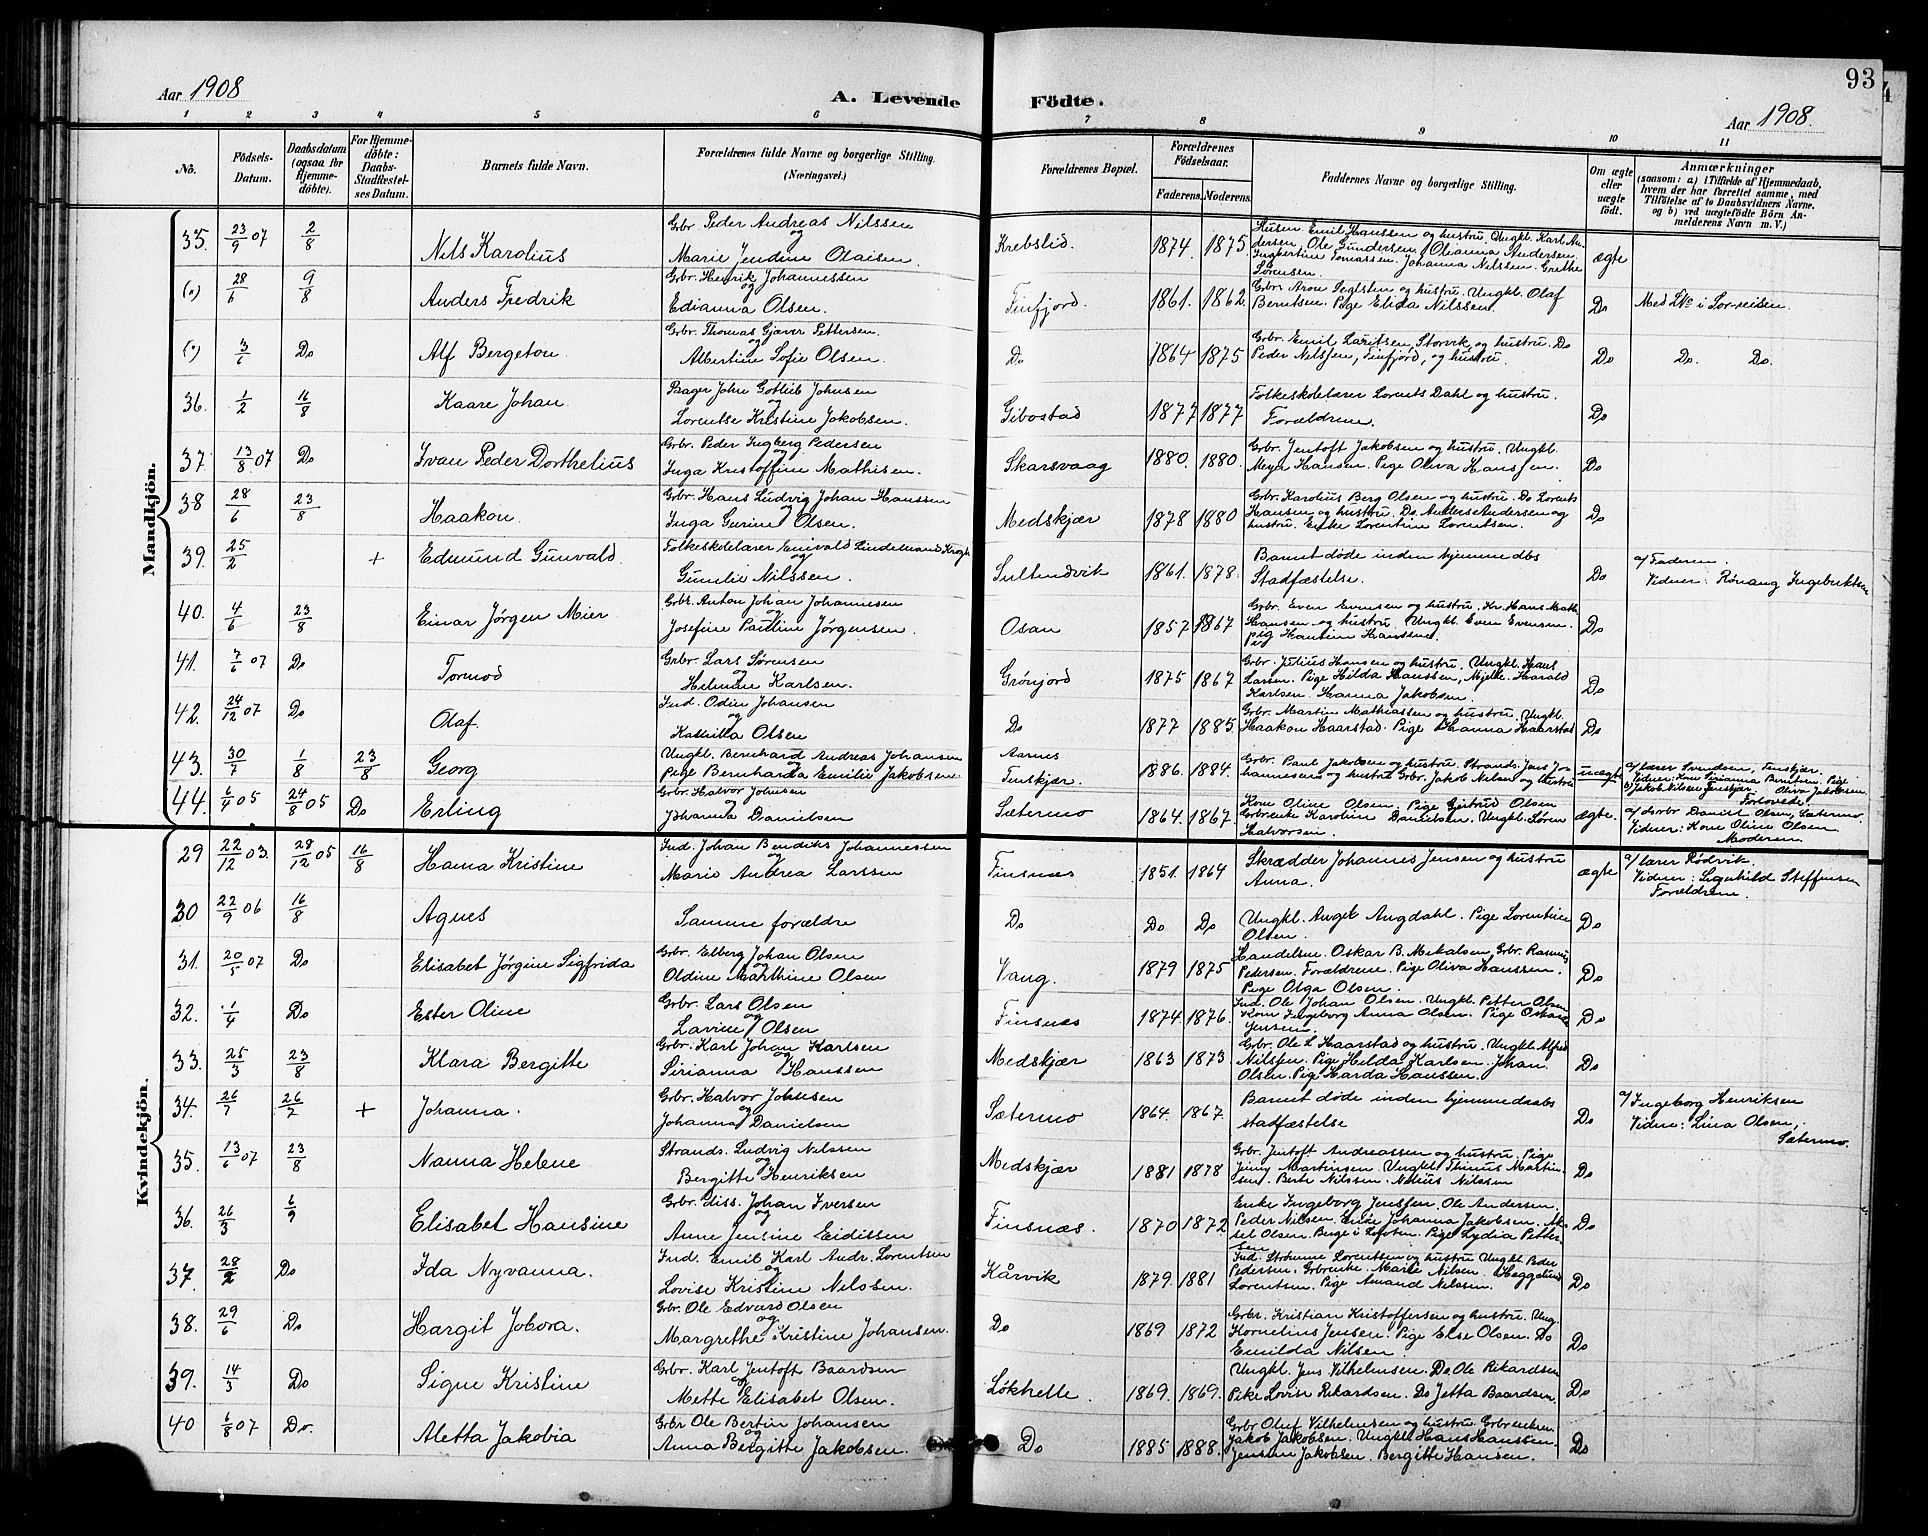 93
Aar 1908
A. Levende
Födte.
Aar 1908.
1 2 3 4 5 6 7 8 9 10 11
No.
Födsels-Datum.
Daabsdatum (ogsaa for Hjemme-döbte).
For Hjemme-döbte: Daabs-Stadfæstel-ses Datum.
Barnets fulde Navn.
Forældrenes fulde Navne og borgerlige Stilling.
(Næringsvei.)
Forældrenes Bopæl.
Forældrenes Födselsaar.
Faderens. Moderens.
Faddernes Navne og borgerlige Stilling.
Om ægte eller uægte födt.
Anmærkninger
(saasom: a) i Tilfælde af Hjemmedaab, hvem der har forrettet samme, med Tilföielse af to Daabsvidners Navne. og b) ved uægtefödte Börn An-melderens Navn m. V.)
Mandkjön.
35. 23/9 07 2/8 Nils Karolius
Grbr. Peder Andreas Nilssen
og
Marie Jendine Olaisen.
Krebslid. 1874. 1875
Husm Emil Hanssen og hustru. Ungkl. Karl An-
dersen, Ole Gundersen, Olianna Andersen.
Ingbertine Tomassen. Johanna Nilssen. Grethe
Sørensen.
ægte
28/6 9/8 Anders Fredrik
Grbr. Henrik Johannessen
og
Edianna Olsen
Finfjord. 1861. 1862.
Grbr. Aron Seglsten og hustru. Ungkl. Olaf
Berntsen. Pige Elida Nilssen.
Do
3/6 Do Alf Bergeton.
Grbr. Thomas Gjæver Pettersen.
og
Albertine Sofie Olsen.
Do 1864 1875
Grbr. Emil Lauritsen, Storvik og hustru. Do
Peder Nilssen, Finfjord, og hustru.
Do Do. Do.
36. 1/2 16/8 Kaare Johan.
Bager John Gotlieb Johnsen
og
Lorentse Kristine Jakobsen.
Gibostad 1877 1877
Folkeskolelærer Lorents Dahl og hustru.
Forældrene.
Do
37. 13/8 07 Do Ivan Peder Dorthelius
Grbr. Peder Ingberg Pedersen
og
Inga Kristoffine Mathisen.
Skarsvaag 1880. 1880.
Grbr. Jentoft Jakobsen og hustru. Ungkl.
Meyer Hansen. Pige Oliva Hanssen.
Do
38 28/6 23/8 Haakon.
Grbr. Hans Ludvig Johan Hanssen
og
Inga Gurine Olsen.
Medskjær 1878 1880
Grbr. Karolius Berg Olsen og hustru. Do Lorents
Hansen og hustru. Do. Anders Andersen og
hustru. Enke Lorentine Lorentsen.
Do
39. 25/2 + Edmund Gunvald.
Folkeskolelærer Enevald Lindemand Krogh
og
Gunelie Nilssen.
1861. 1878.
Barnet døde inden hjemme dbs
Stadfæstelse.
Do
a/ Faderen.
Vidner: Rønaug Ingebriktsen
40. 4/6 23/8 Einar Jørgen Meier
Grbr. Anton Johan Johannesen
og
Josefine Pauline Jørgensen.
Osan 1857 1867
Grbr. Even Evensen og hustru. Kr. Hans Math
Hansen og hustru. Ungkl. Even Evensen.
pig Hansine Hanssen.
Do
41. 7/6 07 Do Tormod
Grbr. Lars Sørensen
og
Helmine Karlsen.
Grønjord 1875 1867
Grbr. Julius Hansen og hustru. Ungkl. Hans
Larsen. Pige Hilda Hanssen, Harald
Karlsen. Hanna Jakobsen.
Do
42. 24/12 07 Do Olaf.
Ind. Odin Johansen
og
Kathilla Olsen
Do 1877 1885.
Grbr. Martin Mathiassen og hustru. Ungkl.
Haakon Haarstad. Pige Hanna Haarstad
Do
43. 30/7 1/8 23/8 Georg
Ungkl. Bernhard Andreas Johansen
og
Pige Bernharda Emilie Jakobsen.
Aarnes
Finskjær. 1886. 1884.
Grbr. Paul Jakobsen og hustru. Strands. Jens Jo-
hannesen og hustru Grbr. Jakob Nilsen og hustru
uægte
a/ lærer Svendsen, Finskjær.
Vidner: Kone Sirianna Berntsen. Pige
b/ Jakob Nilsen Finskjær. Oliva Jakobsen
44. 6/4 05 24/8 05 Do Erling
Grbr. Halvor Johnsen
og
Johanna Danielsen
Sætermo 1864. 1867.
Kone Oline Olsen. Pige Gjertrud Olsen
Grbrenke Karoline Danielsen. Ungkl. Søren
Halvorsen.
ægte.
Daniel Olsen, Sætermo.
Vidner: Kone Oline Olsen
Moderen.
Kvindekjön.
29 22/12 03. 28/12 05 16/8 Hanna Kristine
Ind. Johan Bendiks Johannessen
og
Marie Andrea Larssen
Finsnæs 1851. 1864
Skrædder Johannes Jensen og hustru
Anna.
ægte
a/ lærer Rødvik.
Vidner: Ragnhild Steffensen
Forældrene.
30 22/9 06 16/8 Agnes
Samme forældre
Do Do Do
Ungkl. Angel Angdahl. Pige Lorentine
Olsen.
Do
31. 20/5 07 Do Elisabet Jørgine Sigfrida
Grbr. Elberg Johan Olsen
og
Oldine Marthine Olsen
Vang. 1879 1875
Handelsm. Oskar B. Mikalsen, Grbr. Rasmus
Pedersen. Forældrene. Pige Oliva Hanssen.
Pige Olga Olsen.
Do
32. 1/4 Do Ester Oline
Grbr. Lars Olsen
og
Lavine Olsen
Finsnæs 1874 1876.
Ind. Ole Johan Olsen. Ungkl. Petter Olsen
Kone Ingeborg Anna Olsen. Pige Oskara
Jensen.
Do
33. 25/3 23/8 Klara Bergitte
Grbr. Karl Johan Karlsen
og
Sirianna Hanssen
Medskjær 1863 1873
Grbr. Ole L Haarstad og hustru. Ungkl. Alfred
Nilssen. Pige Hilda Karlsen. Johan
Olsen. Pig Harda Hanssen.
Do
34. 26/7 26/7 + Johanna.
Grbr. Halvor Johnsen
og
Johanna Danielsen
Sætermo 1864. 1867.
Barnet døde inden hjemmedaabs
stadfæstelse
Do
a/ Ingeborg Henriksen
Vidner: Lina Olsen,
Sætermo.
35. 13/6 07 23/8 Nanna Helene
Strands. Ludvig Nilssen
og
Bergitte Henriksen
Medskjær 1881 1878
Grbr. Jentoft Andreassen og hustru. Pige
Jenny Martinsen. Ungkl. Thinus Martin-
sen. Berte Nilssen. Nelius Nilssen
Do
36. 26/3 6/9 Elisabet Hansine
Grbr. Diss. Johan Iversen
og
Anne Jensine Eidissen
Finsnæs. 1870 1872
Enke Ingeborg Jenssen. Ole Andersen.
Peder Nilsen. Enke Johanna Jakobsen. Ak-
sel Olsen. Berge i Lofoten. Pige Lydia Petter-
sen
Do
37. 28/2 Do Ida Nyvanna.
Ind. Emil Karl Andr. Lorentsen
og
Lovise Kristine Nilssen.
Kårvik 1879. 1881
Ind. Strømme Lorentsen og hustru Ungkl Peder
Pedersen. Grbrenke. Marie Nilsen.
Lorentsen. Pige Amanda Nilssen.
Do
38. 29/6 Do Hargit Jobora.
Grbr. Ole Edvard Olsen
og
Margrethe Kristine Johansen.
Do 1869 1872
Grbr. Kristian Kristoffersen og hustru. Ung.
Kornelius Jensen. Pige Else Olsen. Do
Emilda Nilsen.
Do
39. 14/3 Do Signe Kristine
Grbr. Karl Jentoft Baardsen
og
Mette Elisabet Olsen.
Løkhelle. 1869. 1869.
Ungkl. Jens Vilhelmsen. Do Ole Rikardsen
Pike Lovise Rikardsen. Do Jetta Baardsen.
Do
40 6/8 07 Do. Aletta Jakobia
Grbr Ole Bertin Johansen
og
Anna Bergitte Jakobsen.
Do 1885 1888.
Grbr Oluf Vilhelmsen og hustru. Grbrenken.
Jakob Jakobsen. Ungkl. Hans Hanssen.
Jensine Jakobsen. Bergitte Hansen.
Do